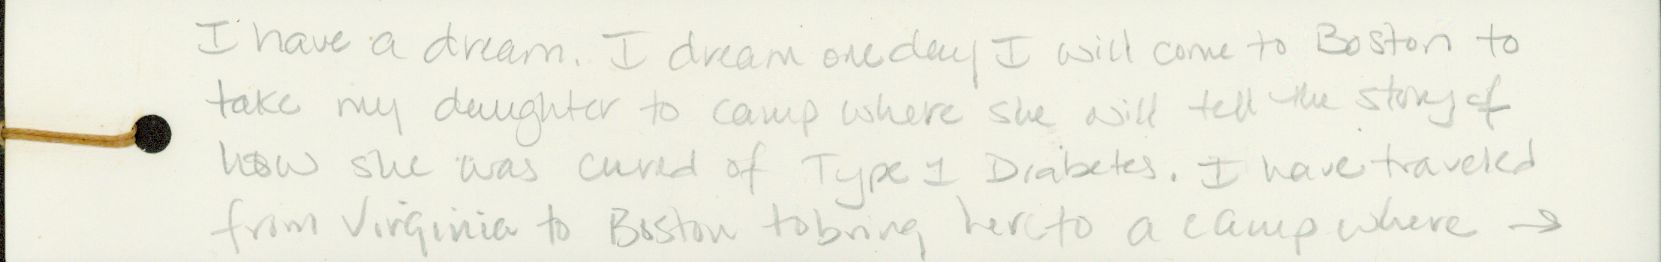 I have a dream. I dream one day I will come to Boston to
take my daughter to camp where she will tell the story of
how she was cured of Type 1 Diabetes. I have traveled
from Virginia to Boston to bring her to a camp where →